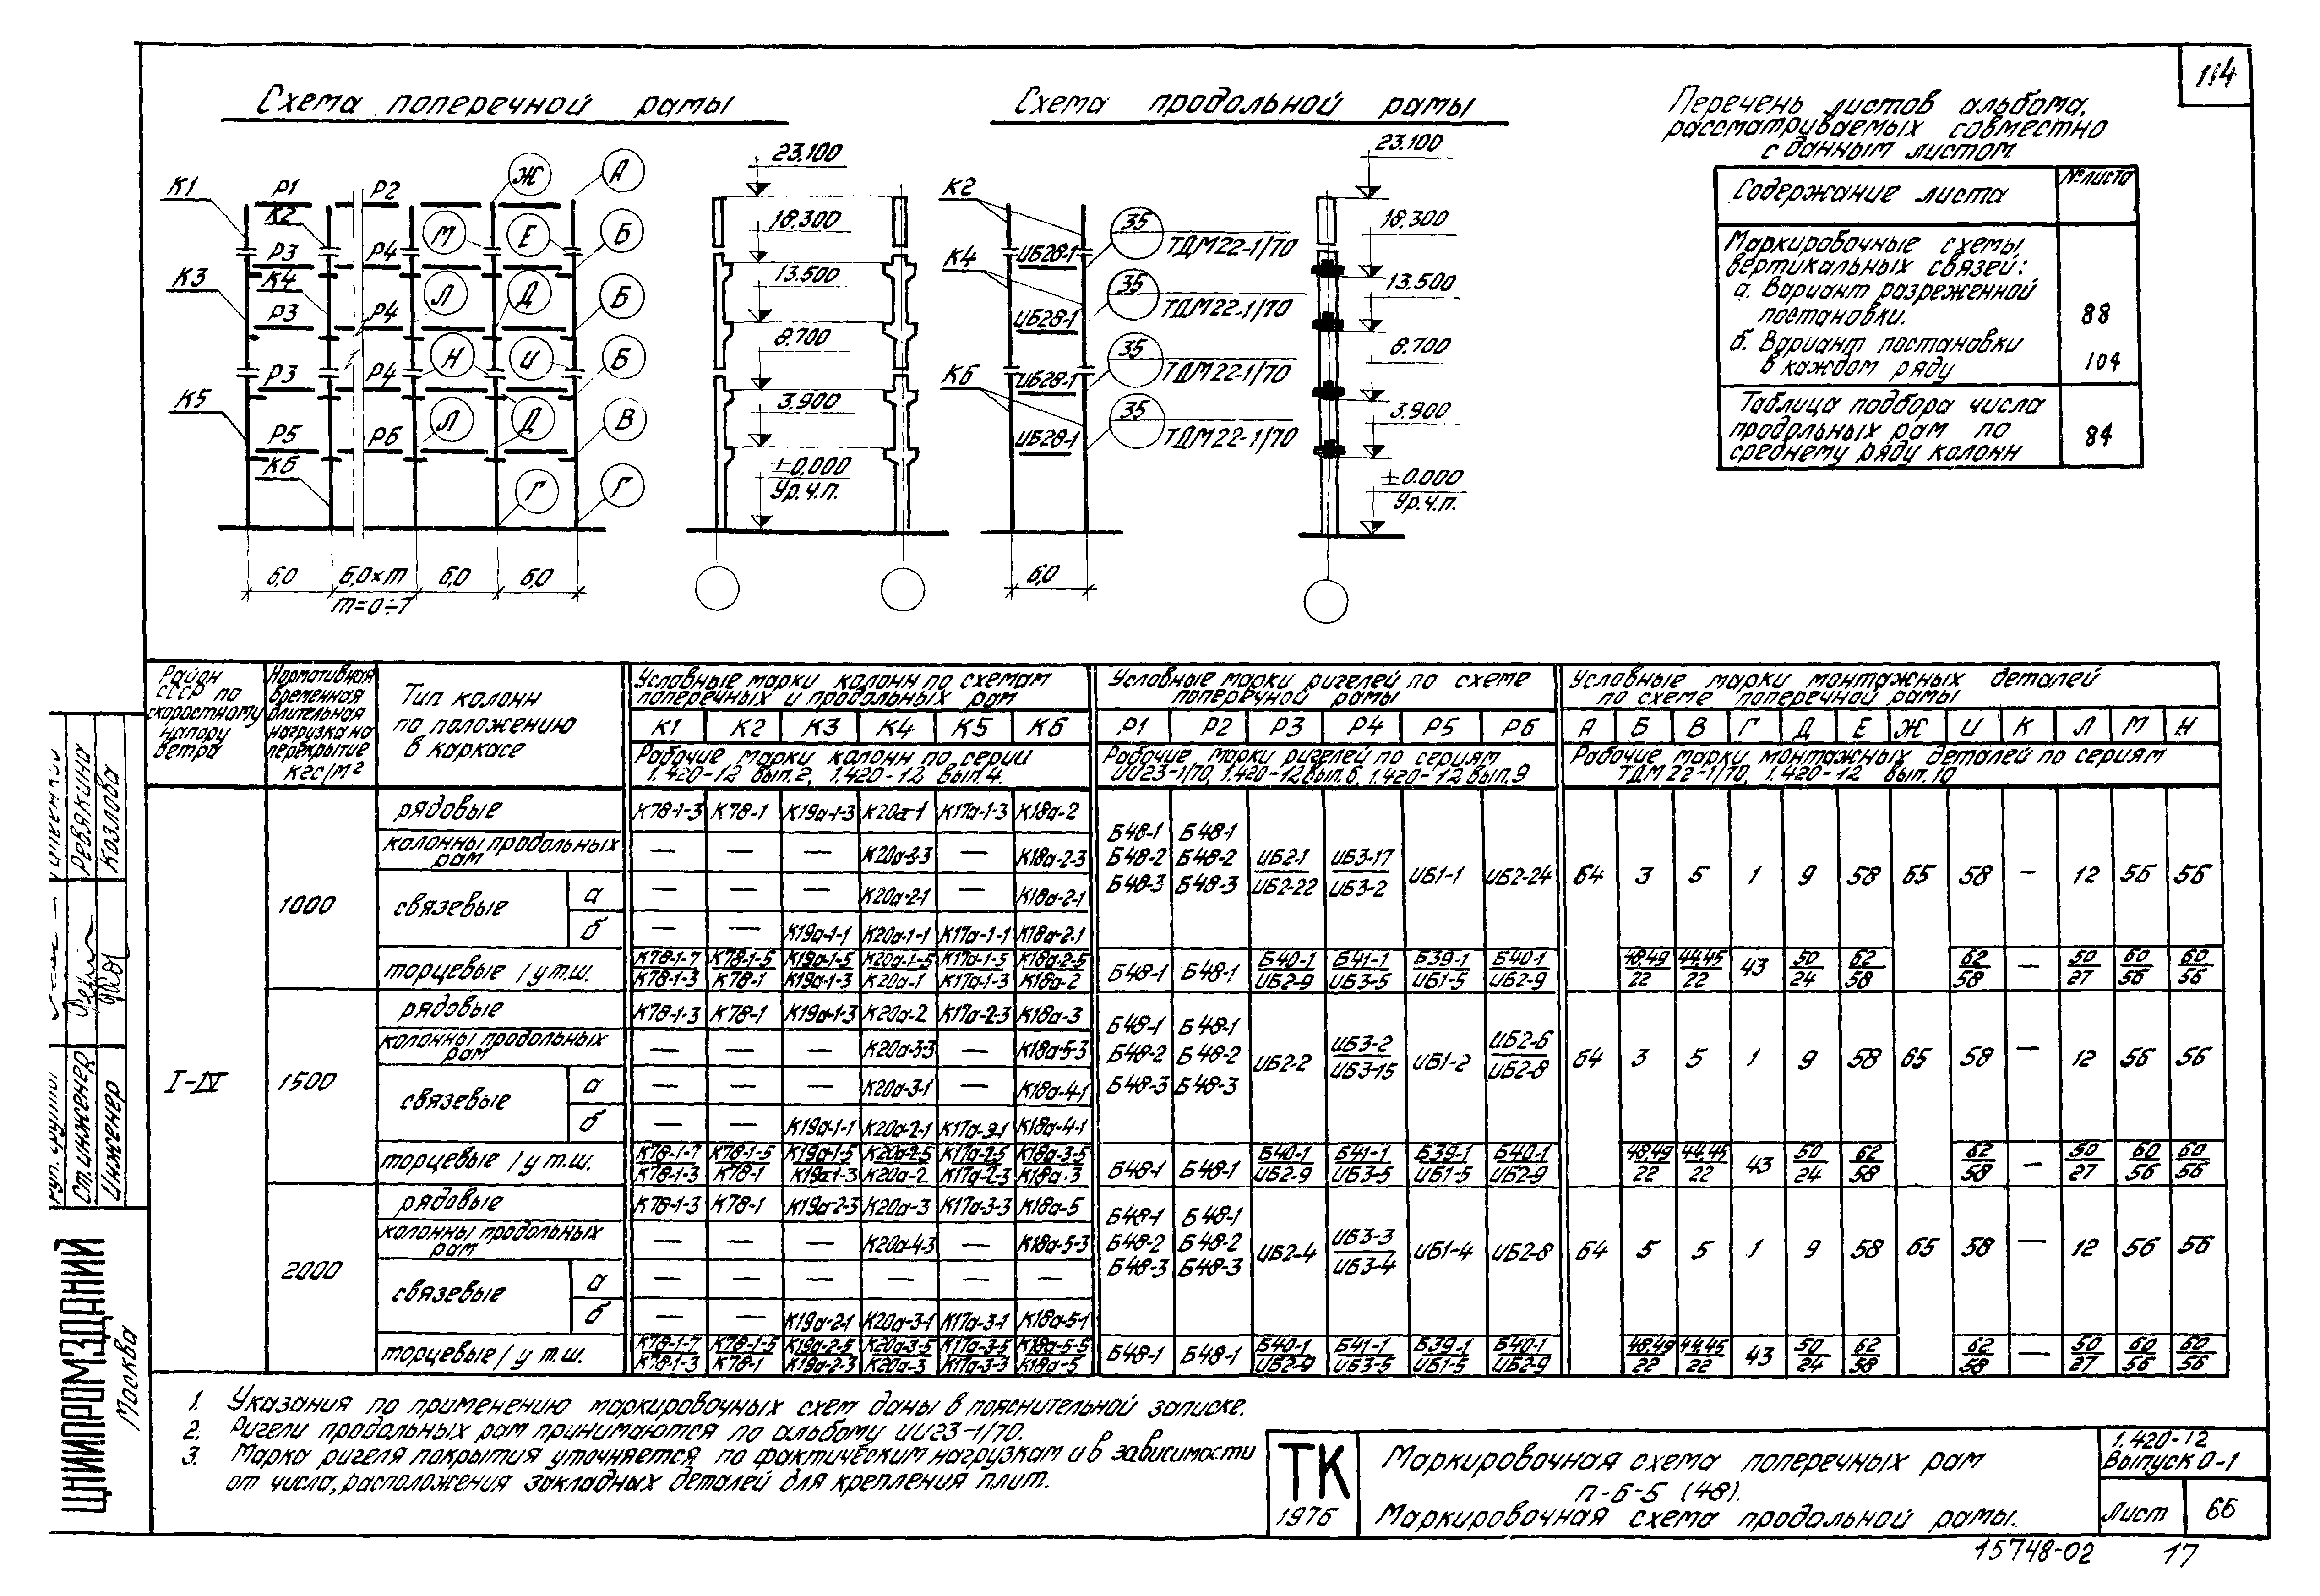 114
Схема поперечной рамы
Схема продольной рамы
Перечень листов альбома,
рассматриваемых совместно
с данным листом.
Содержание листа №листа
Маркировочные схемы
вертикальных связей:
а. Вариант разреженной
постановки. 88
б. Вариант постановки
в каждом ряду 104
Таблица подбора числа
продольных рам по
среднему ряду колонн 84
К1 Р1 К2 Р2 Ж А
Р3 Р4 М Е Б
К3 К4 Л Д Б
Р3 Р4
Р3 Р4 Н И Б
К5 Р5 Р6 Л Д В
К6 Г Г
6,0 6,0×m 6,0 6,0
m=0÷7
23.100
18.300
13.500
8.700
3.900
±0.000
Ур.ч.п.
К2 ИБ28-1 35 ТДМ22-1/70
К4 ИБ28-1 35 ТДМ22-1/70
К6 ИБ28-1 35 ТДМ22-1/70
ИБ28-1 35 ТДМ22-1/70
6,0
23.100
18.300
13.500
8.700
3.900
±0.000
Ур.ч.п.
Район СССР по скоростному напору ветра
Нормативная временная длительная нагрузка на перекрытие кгс/м²
Тип колонн по положению в каркасе
Условные марки колонн по схемам поперечных и продольных рам
К1 К2 К3 К4 К5 К6
Рабочие марки колонн по серии 1.420-12 вып.2, 1.420-12 вып.4.
Условные марки ригелей по схеме поперечной рамы
Р1 Р2 Р3 Р4 Р5 Р6
Рабочие марки ригелей по сериям ИИ23-1/70, 1.420-12 вып.6, 1.420-12 вып.9
Условные марки монтажных деталей по схеме поперечной рамы
А Б В Г Д Е Ж И К Л М Н
Рабочие марки монтажных деталей по сериям ТДМ 22-1/70, 1.420-12 вып.10
I-IV
1000
рядовые К78-1-3 К78-1 К19а-1-3 К20а-1 К17а-1-3 К18а-2
колонны продольных рам — — — К20а-2-3 — К18а-2-3
связевые а — — — К20а-2-1 — К18а-2-1
б — — К19а-1-1 К20а-1-1 К17а-1-1 К18а-2-1
Б48-1 Б48-2 Б48-3 Б48-1 Б48-2 Б48-3 ИБ2-1/ИБ2-22 ИБ3-17/ИБ3-2 ИБ1-1 ИБ2-24
64 3 5 1 9 58 65 58 — 12 56 56
торцевые / у т.ш. К78-1-7/К78-1-3 К78-1-5/К78-1 К19а-1-5/К19а-1-3 К20а-1-5/К20а-1 К17а-1-5/К17а-1-3 К18а-2-5/К18а-2
Б48-1 Б48-1 Б40-1/ИБ2-9 Б41-1/ИБ3-5 Б39-1/ИБ1-5 Б40-1/ИБ2-9
48,49/22 44,45/22 43 50/24 62/58 62/58 — 50/27 60/56 60/56
1500
рядовые К78-1-3 К78-1 К19а-1-3 К20а-2 К17а-2-3 К18а-3
колонны продольных рам — — — К20а-3-3 — К18а-5-3
связевые а — — — К20а-3-1 — К18а-4-1
б — — К19а-1-1 К20а-2-1 К17а-3-1 К18а-4-1
Б48-1 Б48-2 Б48-3 Б48-1 Б48-2 Б48-3 ИБ2-2 ИБ3-2/ИБ3-15 ИБ1-2 ИБ2-6/ИБ2-8
64 3 5 1 9 58 65 58 — 12 56 56
торцевые / у т.ш. К78-1-7/К78-1-3 К78-1-5/К78-1 К19а-1-5/К19а-1-3 К20а-2-5/К20а-2 К17а-2-5/К17а-2-3 К18а-3-5/К18а-3
Б48-1 Б48-1 Б40-1/ИБ2-9 Б41-1/ИБ3-5 Б39-1/ИБ1-5 Б40-1/ИБ2-9
48,49/22 44,45/22 43 50/24 62/58 62/58 — 50/27 60/56 60/56
2000
рядовые К78-1-3 К78-1 К19а-2-3 К20а-3 К17а-3-3 К18а-5
колонны продольных рам — — — К20а-4-3 — К18а-5-3
связевые а — — — — — —
б — — К19а-2-1 К20а-3-1 К17а-3-1 К18а-5-1
Б48-1 Б48-2 Б48-3 Б48-1 Б48-2 Б48-3 ИБ2-4 ИБ3-3/ИБ3-4 ИБ1-4 ИБ2-8
64 5 5 1 9 58 65 58 — 12 56 56
торцевые / у т.ш. К78-1-7/К78-1-3 К78-1-5/К78-1 К19а-2-5/К19а-2-3 К20а-3-5/К20а-3 К17а-3-5/К17а-3-3 К18а-5-5/К18а-5
Б48-1 Б48-1 Б40-1/ИБ2-9 Б41-1/ИБ3-5 Б39-1/ИБ1-5 Б40-1/ИБ2-9
48,49/22 44,45/22 43 50/24 62/58 62/58 — 50/27 60/56 60/56
1. Указания по применению маркировочных схем даны в пояснительной записке.
2. Ригели продольных рам принимаются по альбому ИИ23-1/70.
3. Марка ригеля покрытия уточняется по фактическим нагрузкам и в зависимости
от числа, расположения закладных деталей для крепления плит.
ТК
1976
Маркировочная схема поперечных рам
п-6-5 (48).
Маркировочная схема продольной рамы.
1.420-12
Выпуск 0-1
Лист 66
15748-02 17
Ревякина
Козлова
Ст.инженер
Инженер
ЦНИИПРОМЗДАНИЙ
Москва